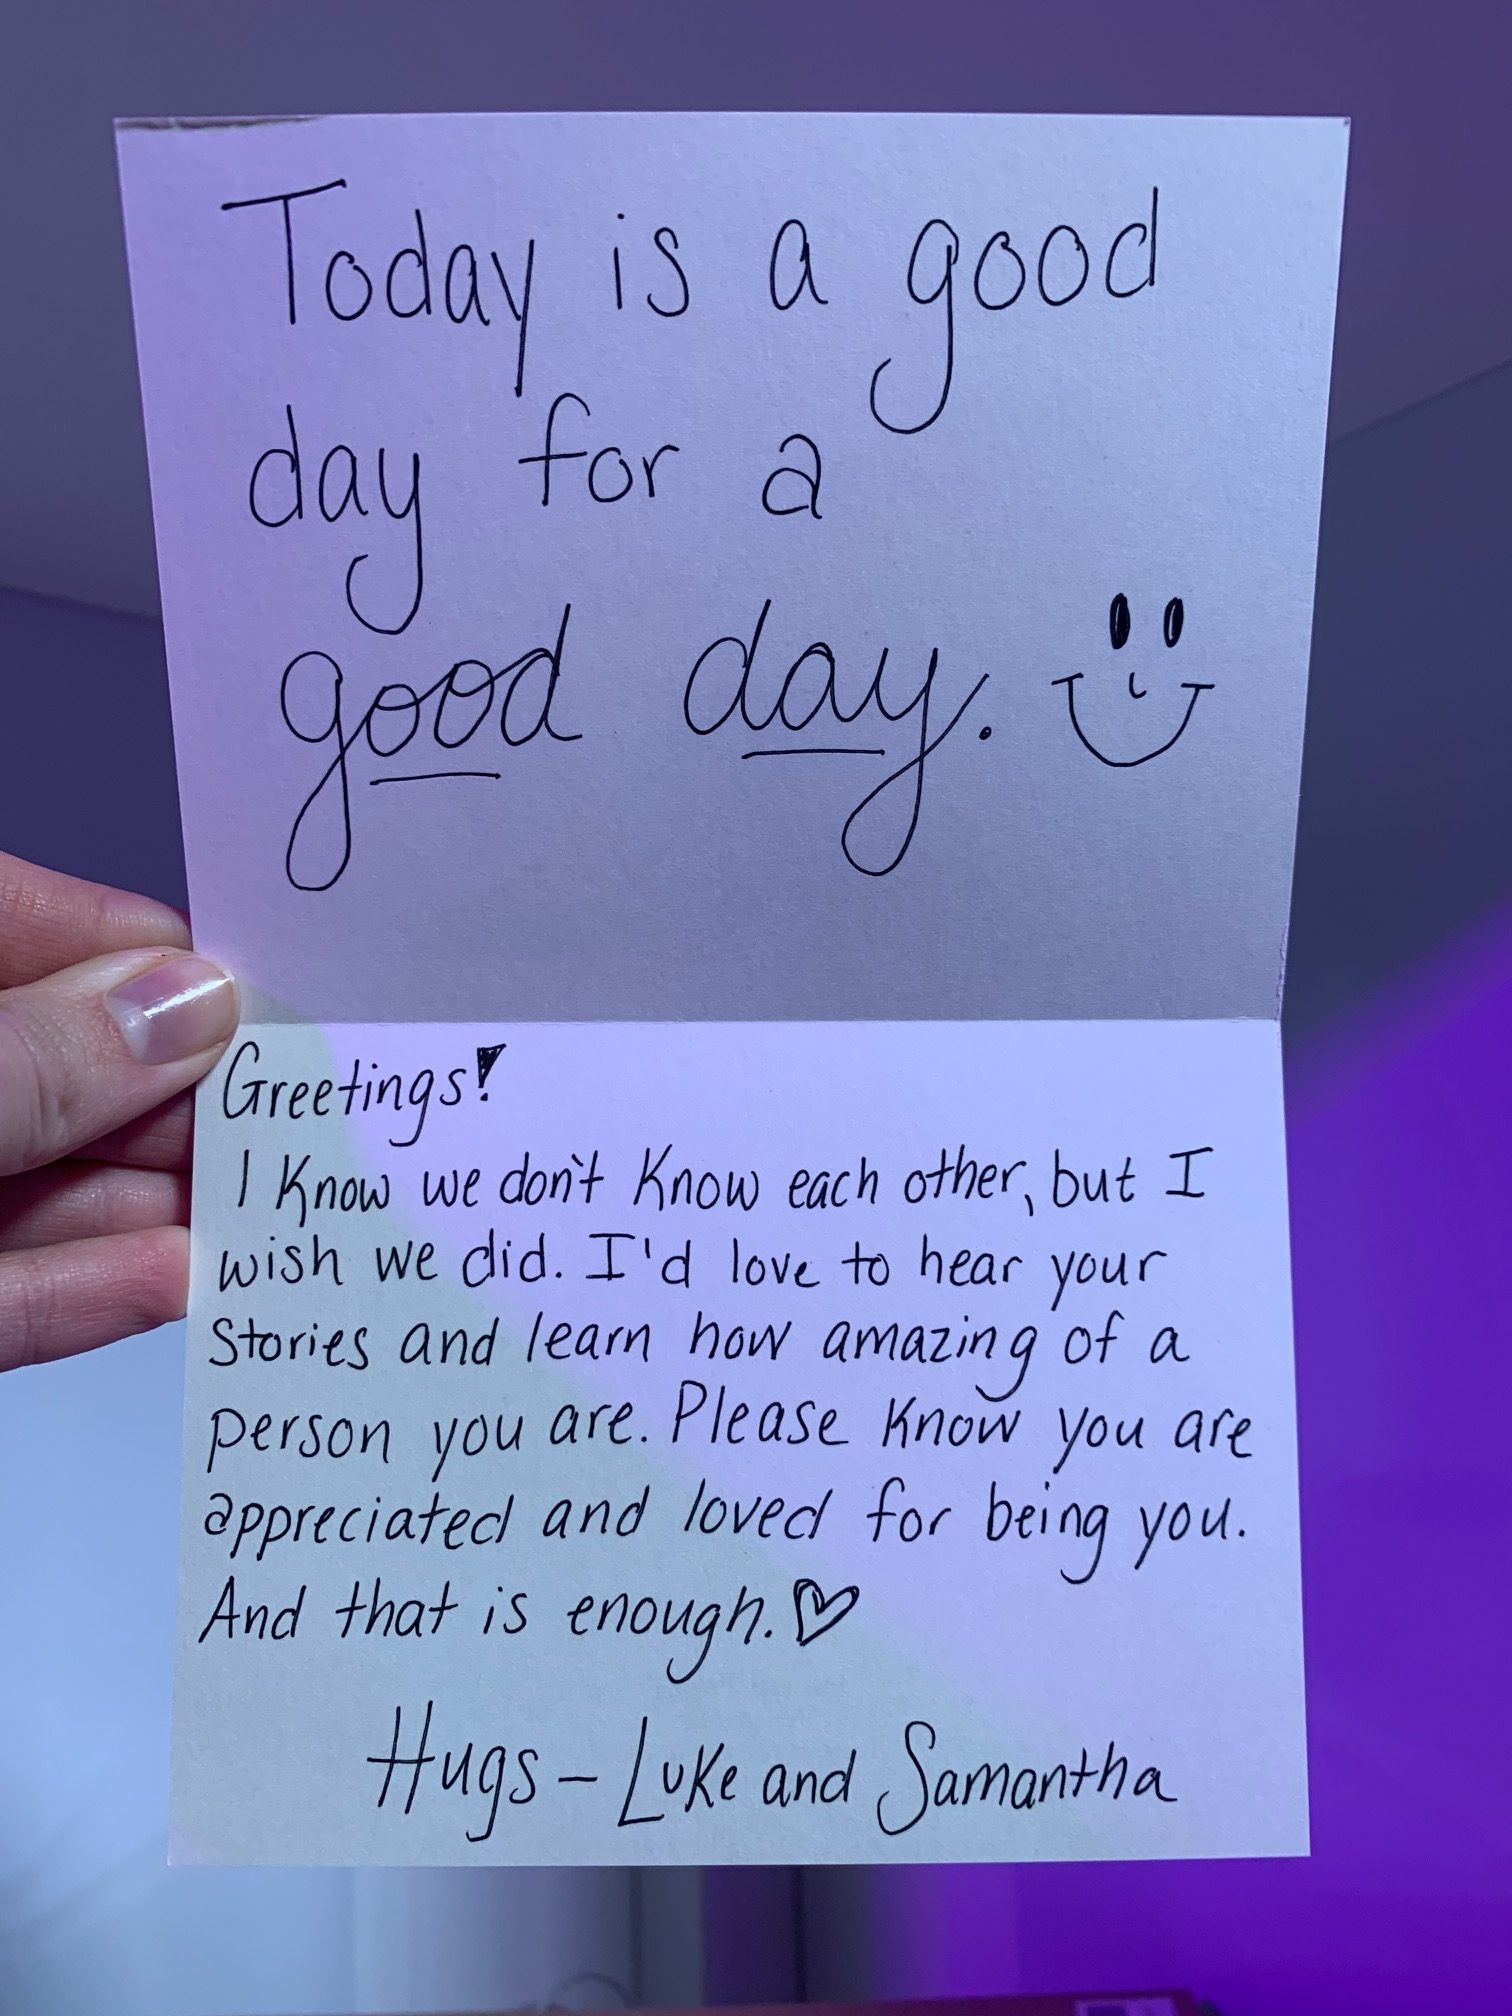 Today is a good
day for a
good day.
Greetings!
I know we don't know each other, but I
wish we did. I'd love to hear your
stories and learn how amazing of a
person you are. Please know you are
appreciated and loved for being you.
And that is enough. ♡
Hugs - Luke and Samantha